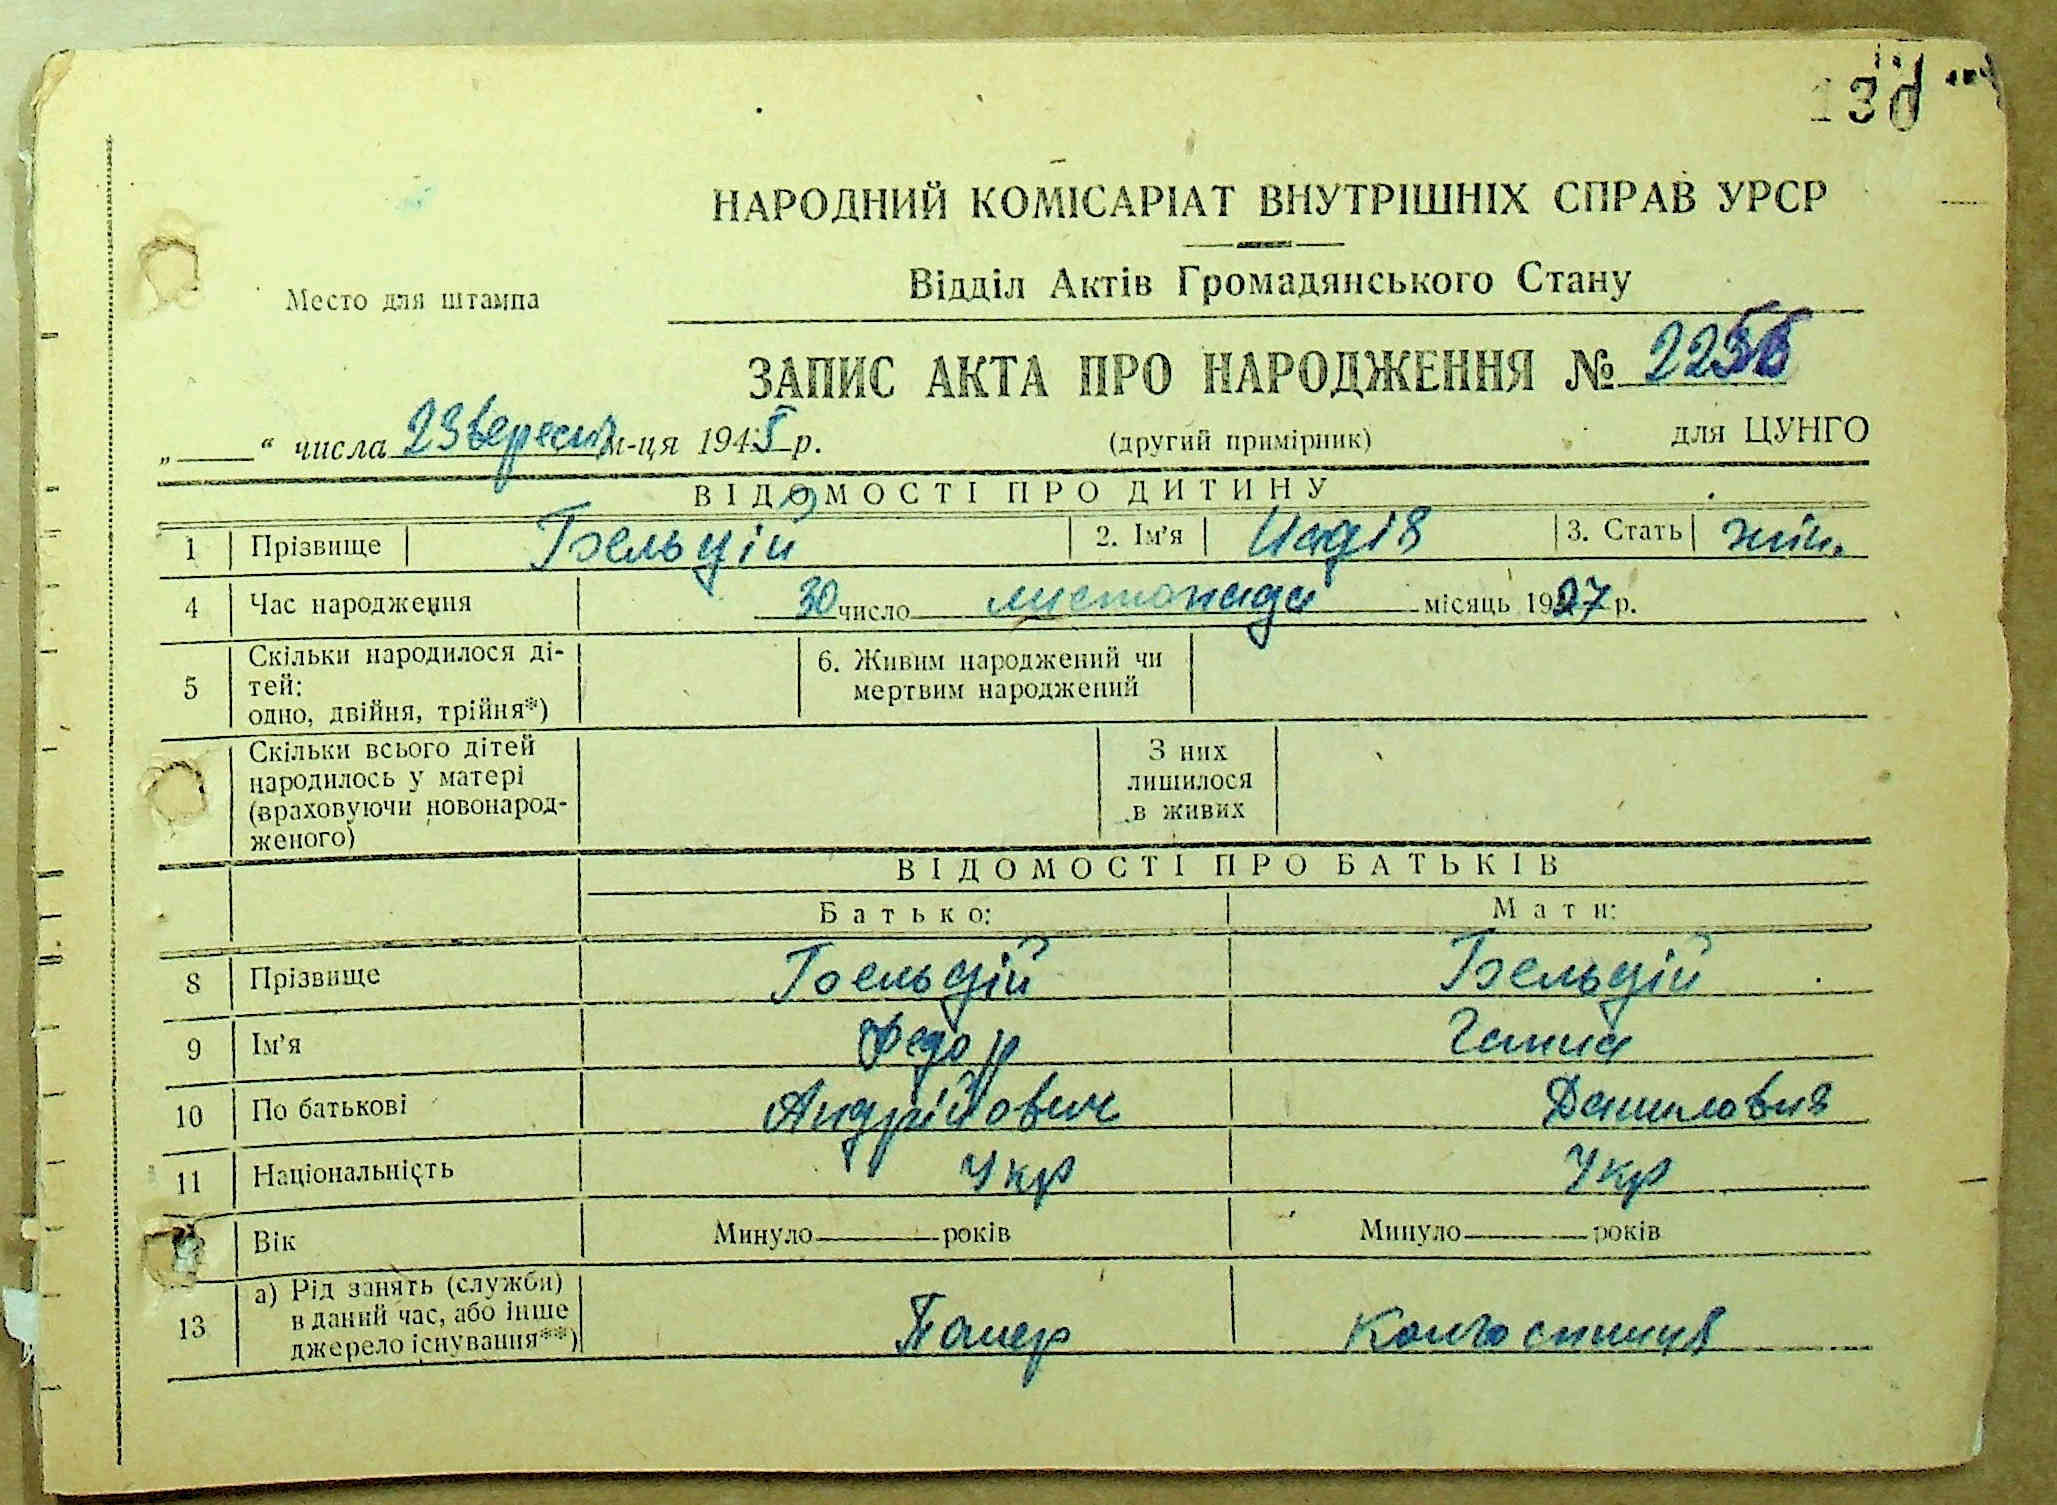 НАРОДНИЙ КОМІСАРІАТ ВНУТРІШНІХ СПРАВ УРСР
Відділ Актів Громадянського Стану
Место для штампа
ЗАПИС АКТА ПРО НАРОДЖЕННЯ №
„ “ числа 23 вересня м-ця 1945 р. (другий примірник) для ЦУНГО
ВІДОМОСТІ ПРО ДИТИНУ
1 Прізвище Бельдій 2. Ім’я Надія 3. Стать жін.
4 Час народження 30 число листопада місяць 1927 р.
5 Скільки народилося ді-
тей:
одно, двійня, трійня*)
6. Живим народжений чи
мертвим народжений
Скільки всього дітей
народилось у матері
(враховуючи новонарод-
женого)
З них
лишилося
в живих
ВІДОМОСТІ ПРО БАТЬКІВ
Батько: Мати:
8 Прізвище Бельдій Бельдій
9 Ім’я Федор Ганна
10 По батькові Андрійович Даниловна
11 Національність Укр Укр
Вік Минуло років Минуло років
13 а) Рід занять (служби)
в даний час, або інше
джерело існування**)
Помер Колгоспниця